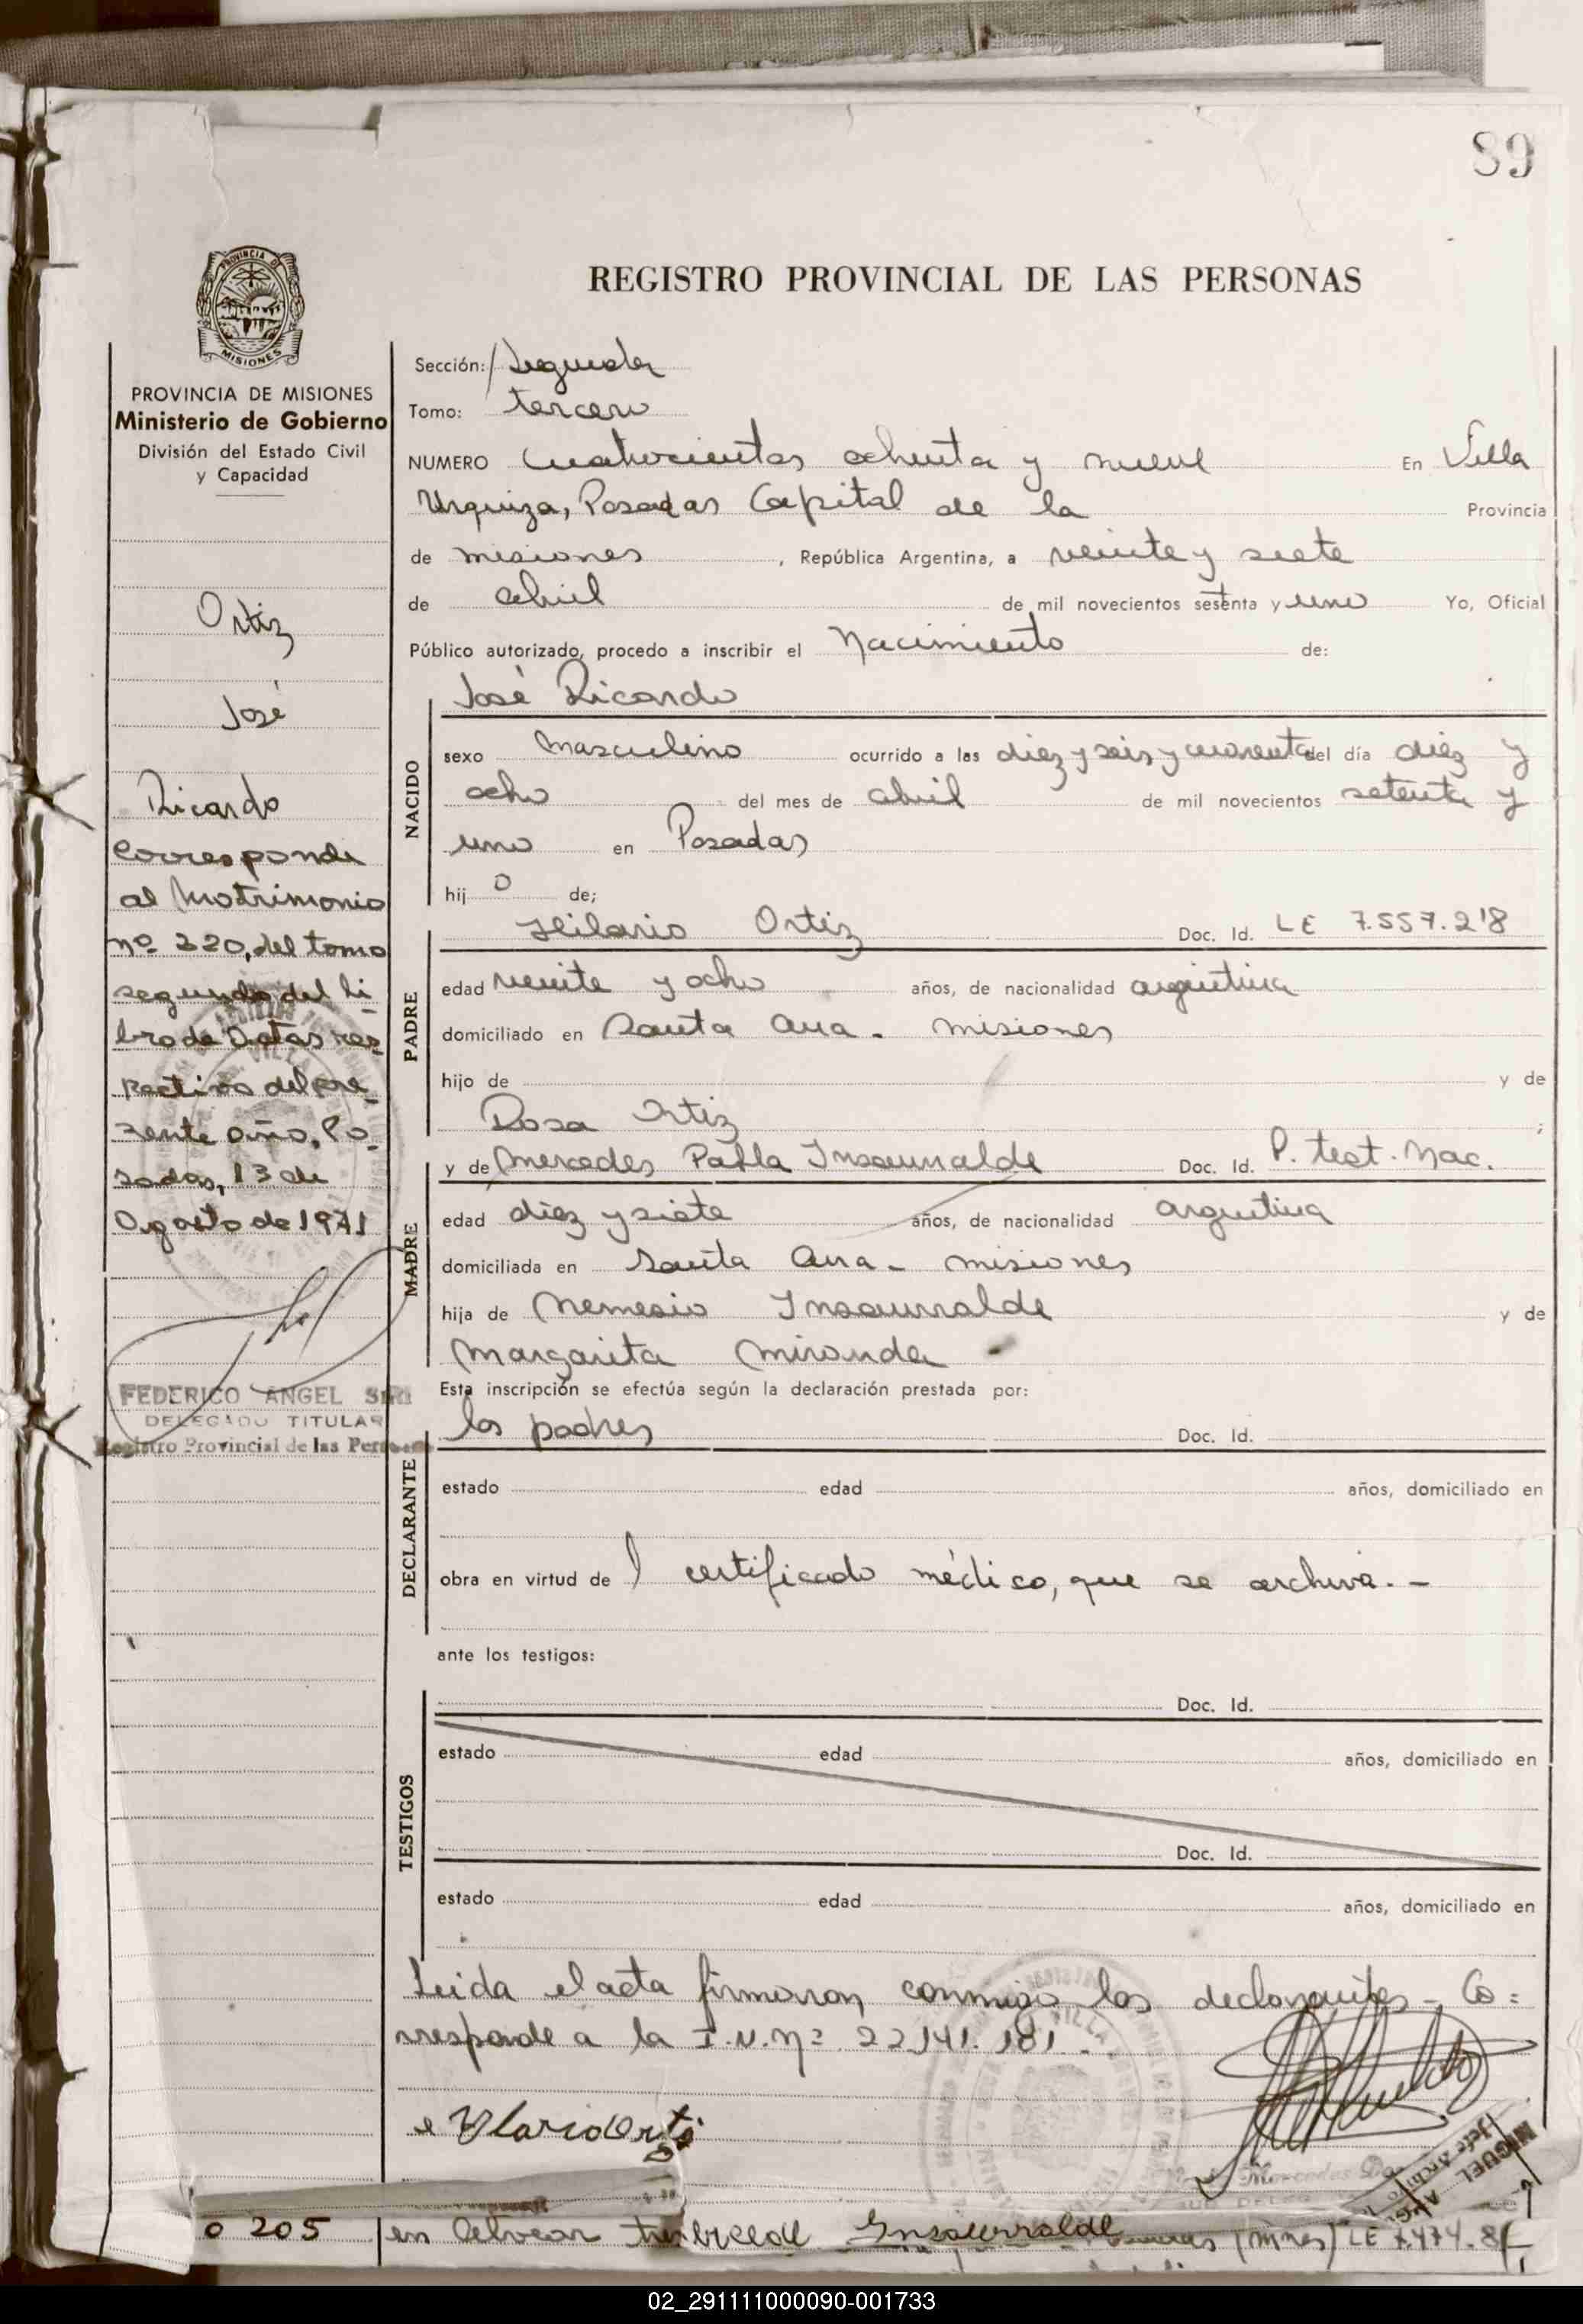 89
PROVINCIA DE
MISIONES
PROVINCIA DE MISIONES
Ministerio de Gobierno
División del Estado Civil
y Capacidad
Ortiz
José
Ricardo
Corresponde
al Matrimonio
nº 320, del tomo
segundo del li
bro de Actas res
pectivo del pre
sente año, Po
sadas, 13 de
Agosto de 1971
FEDERICO ANGEL SIRI
DELEGADO TITULAR
Registro Provincial de las Personas
REGISTRO PROVINCIAL DE LAS PERSONAS
Sección: Segunda
Tomo: tercero
NUMERO cuatrocientos ochenta y nueve En Villa
Urquiza, Posadas Capital de la Provincia
de misiones, República Argentina, a veinte y siete
de abril de mil novecientos setenta y uno Yo, Oficial
Público autorizado, procedo a inscribir el Nacimiento de:
José Ricardo
NACIDO
sexo masculino ocurrido a las diez y seis y cuarenta del día diez y
ocho del mes de abril de mil novecientos setenta y
uno en Posadas
hij o de;
Hilario Ortiz Doc. Id. LE 7.557.218
PADRE
edad veinte y ocho años, de nacionalidad argentina
domiciliado en Santa Ana - misiones
hijo de y de
Rosa Ortiz ;
y de Mercedes Pabla Insaurralde Doc. Id. P. test. Nac.
MADRE
edad diez y siete años, de nacionalidad argentina
domiciliada en Santa Ana - misiones
hija de Nemesio Insaurralde y de
Margarita Miranda
Esta inscripción se efectúa según la declaración prestada por:
los padres Doc. Id.
DECLARANTE
estado edad años, domiciliado en
obra en virtud de l certificado médico, que se archiva. -
ante los testigos:
Doc. Id.
TESTIGOS
estado edad años, domiciliado en
Doc. Id.
estado edad años, domiciliado en
Leida el acta firmaron conmigo los declarantes - Co=
rresponde a la I.N. Nº 22.141.181.-
Mercedes
MIGUEL
Jefe Archivo
o 205
en Alvear Insaurralde (Mnes) LE 7.474.8
02_291111000090-001733